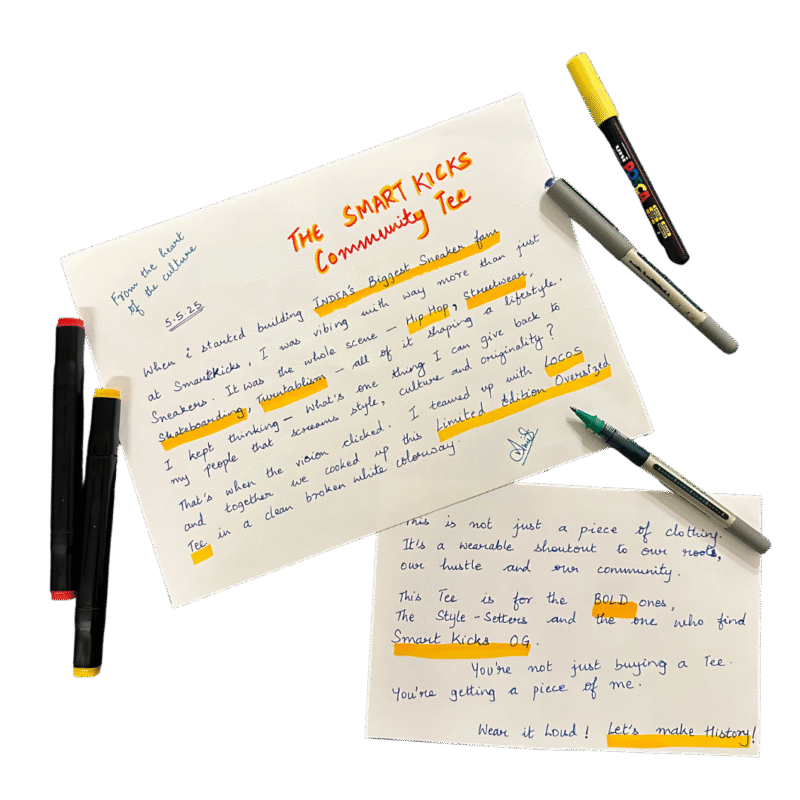 THE SMART KICKS
Community Tee
From the heart
of the culture
5.5.25
When i started building INDIA's Biggest Sneaker fam
at Smartkicks, I was vibing with way more than just
Sneakers. It was the whole scene - Hip Hop, Streetwear,
Skateboarding, Turntablism - all of it shaping a lifestyle.
I kept thinking - what's one thing I can give back to
my people that screams style, culture and originality?
That's when the vision clicked. I teamed up with LOCOS
and together we cooked up this Limited Edition Oversized
Tee in a clean broken white colorway.
This is not just a piece of clothing.
It's a wearable shoutout to our roots,
our hustle and our community.
This Tee is for the BOLD ones,
The Style-Setters and the one who find
Smart Kicks OG.
You're not just buying a Tee.
You're getting a piece of me.
Wear it Loud! Let's make History!
uni
POSCA